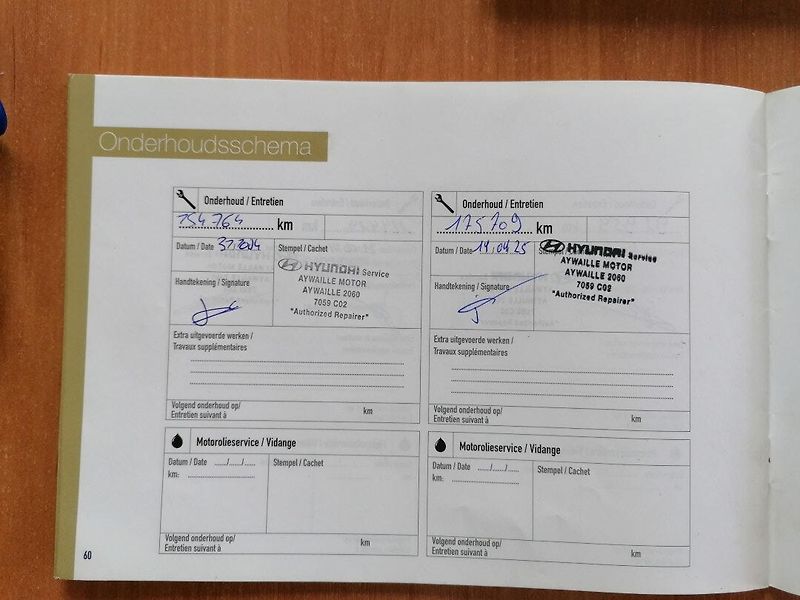 Onderhoudsschema
Onderhoud / Entretien
154764 km
Datum / Date
Stempel / Cachet
HYUNDAI Service
AYWAILLE MOTOR
AYWAILLE 2060
7059 C02
"Authorized Repairer"
Handtekening / Signature
Extra uitgevoerde werken /
Travaux supplémentaires
Volgend onderhoud op/
Entretien suivant à km
Onderhoud / Entretien
175709 km
Datum / Date 14.04.25
HYUNDAI Service
AYWAILLE MOTOR
AYWAILLE 2060
7059 C02
"Authorized Repairer"
Handtekening / Signature
Extra uitgevoerde werken /
Travaux supplémentaires
Volgend onderhoud op/
Entretien suivant à km
Motorolieservice / Vidange
Datum / Date ..../..../....
Stempel / Cachet
km:
Volgend onderhoud op/
Entretien suivant à km
Motorolieservice / Vidange
Datum / Date ..../..../....
Stempel / Cachet
km:
Volgend onderhoud op/
Entretien suivant à km
60